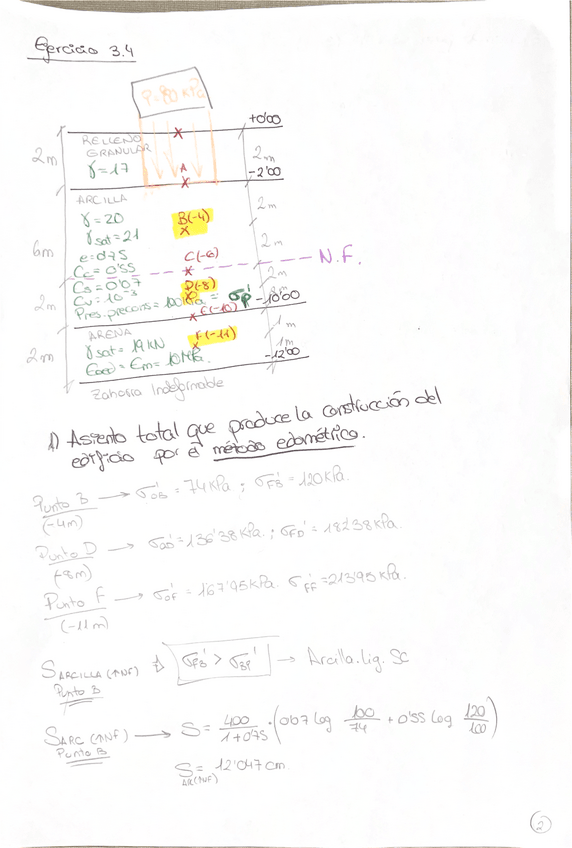 Ejercicio 3.4
P=80 KPa
+0'00
RELLENO
GRANULAR
2m
γ=17
A
2m
-2'00
ARCILLA
γ=20
γsat=21
e=0'75
Cc=0'55
Cs=0'07
Cv=10⁻³
Pres. preconso=100KPa = σp'
6m
2m
B(-4)
C(-6)
D(-8)
E(-10)
2m
2m
2m
N.F.
-10'00
ARENA
γsat=19KN
Eoed=Em=10MPa.
2m
F(-11)
1m
1m
-12'00
Zahorra Indeformable
1) Asiento total que produce la construcción del
edificio por el método edométrico.
Punto B → σ'OB = 74KPa ; σ'FB = 120KPa.
(-4m)
Punto D → σ'OD = 136'38KPa ; σ'FD = 182'38KPa.
(-8m)
Punto F → σ'OF = 167'95KPa. σ'FF = 213'95KPa.
(-11m)
S ARCILLA (↑NF) σ'FB > σ'BP → Arcilla. lig. SC
Punto B
S ARC (↑NF) → S = 400/1+0'75 · (0'07 log 100/74 + 0'55 log 120/100)
Punto B
S AR(↑NF) = 12'047cm.
2